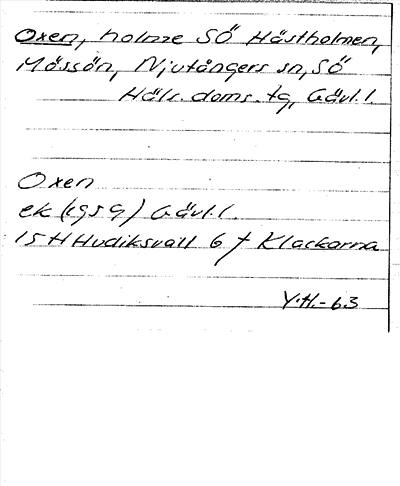 Oxen, holme SÖ Hästholmen,
Mössön, Njutångers sn, SÖ
Häls. doms. tg, Gävl. l.
Oxen
ek (1959) Gävl. l.
15 H Hudiksvall 6 f Klackarna
Y.H.-63